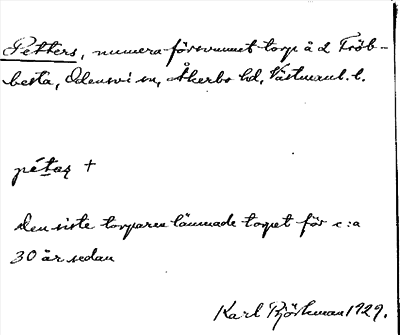 Petters, numera försvunnet torp å ä Fröb-
besta, Odensvi sn, Åkerbo hd, Västmanl. l.
pétaʂ +
Den siste torparen lämnade torpet för c:a
30 år sedan
Karl Björkman 1929.